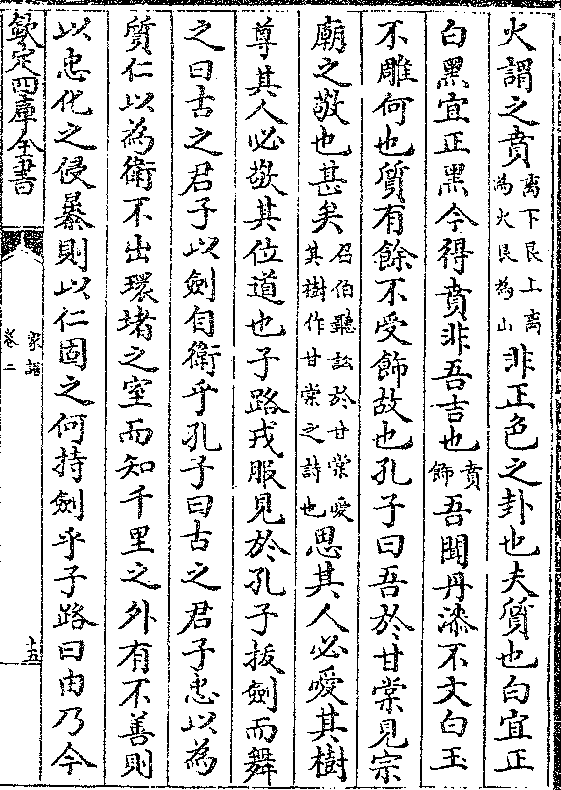 火謂之賁離下艮上離為火艮為山非正色之卦也夫質也白宜正
白黑宜正黑今得賁非吾吉也賁飾吾聞丹漆不文白玉
不雕何也質有餘不受飾故也孔子曰吾於甘棠見宗
廟之敬也甚矣召伯聽訟於甘棠愛其樹作甘棠之詩也思其人必愛其樹
尊其人必敬其位道也子路戎服見於孔子拔劍而舞
之曰古之君子以劍自衛乎孔子曰古之君子忠以為
質仁以為衛不出環堵之室而知千里之外有不善則
以忠化之侵暴則以仁固之何持劍乎子路曰由乃今
欽定四庫全書
家語
卷二
十五